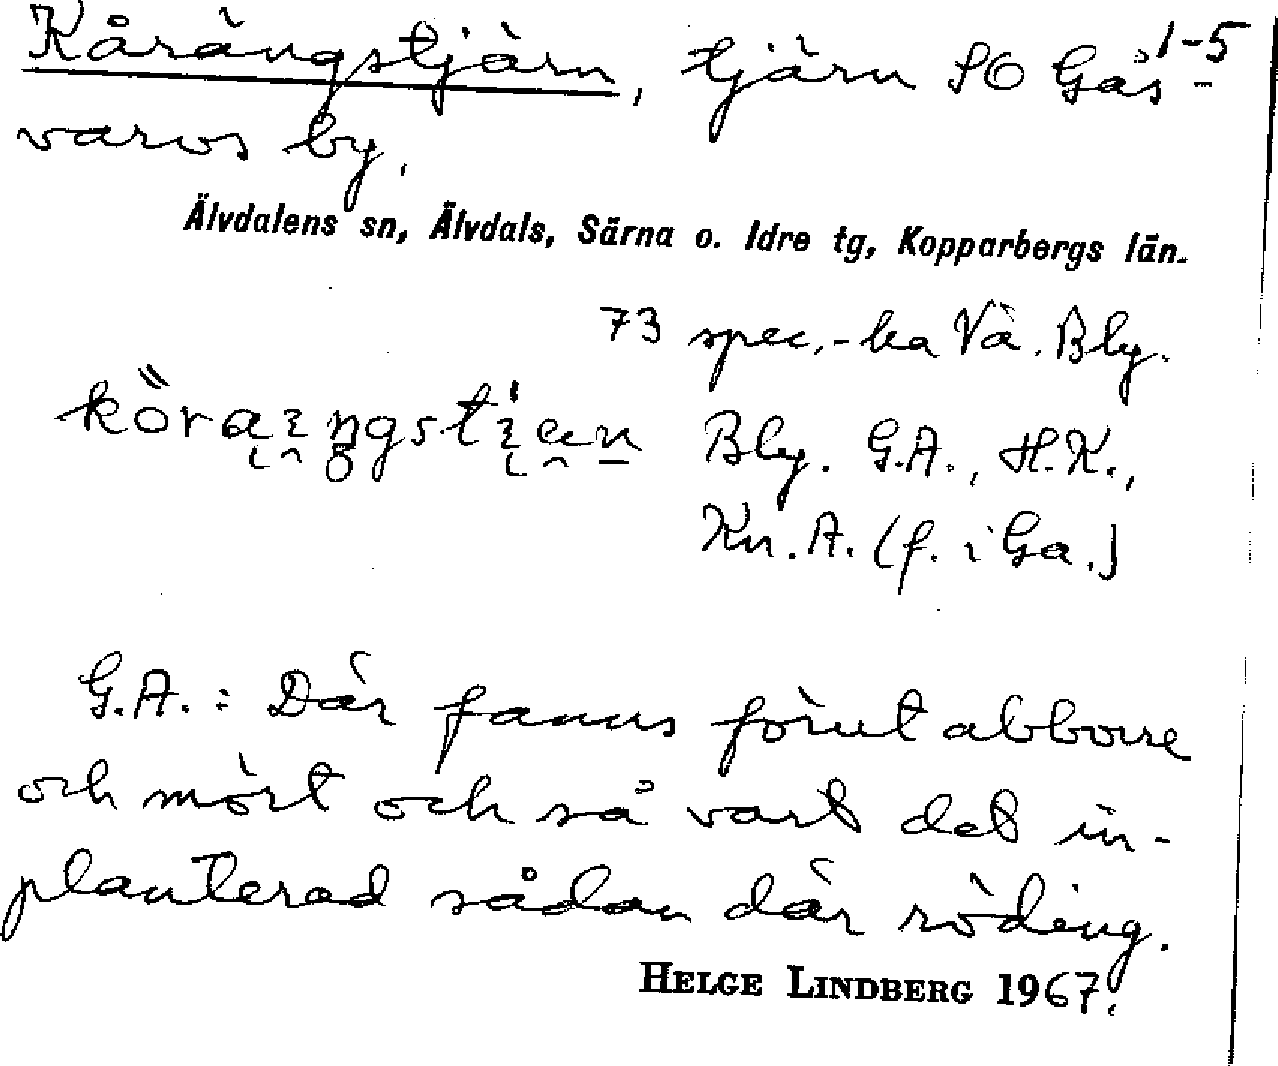 Kårängstjärn, tjärn SO Gås- 1-5
varvs by.
Älvdalens sn, Älvdals, Särna o. Idre tg, Kopparbergs län.
73 spec.-ka Vä. Bly.
Bly. G.A., H.K.,
Kn. A. (f. i Ga.)
G.A.: Där fanns förut abborre
och mört och så vart det in-
planterad sådan där röding.
HELGE LINDBERG 1967.